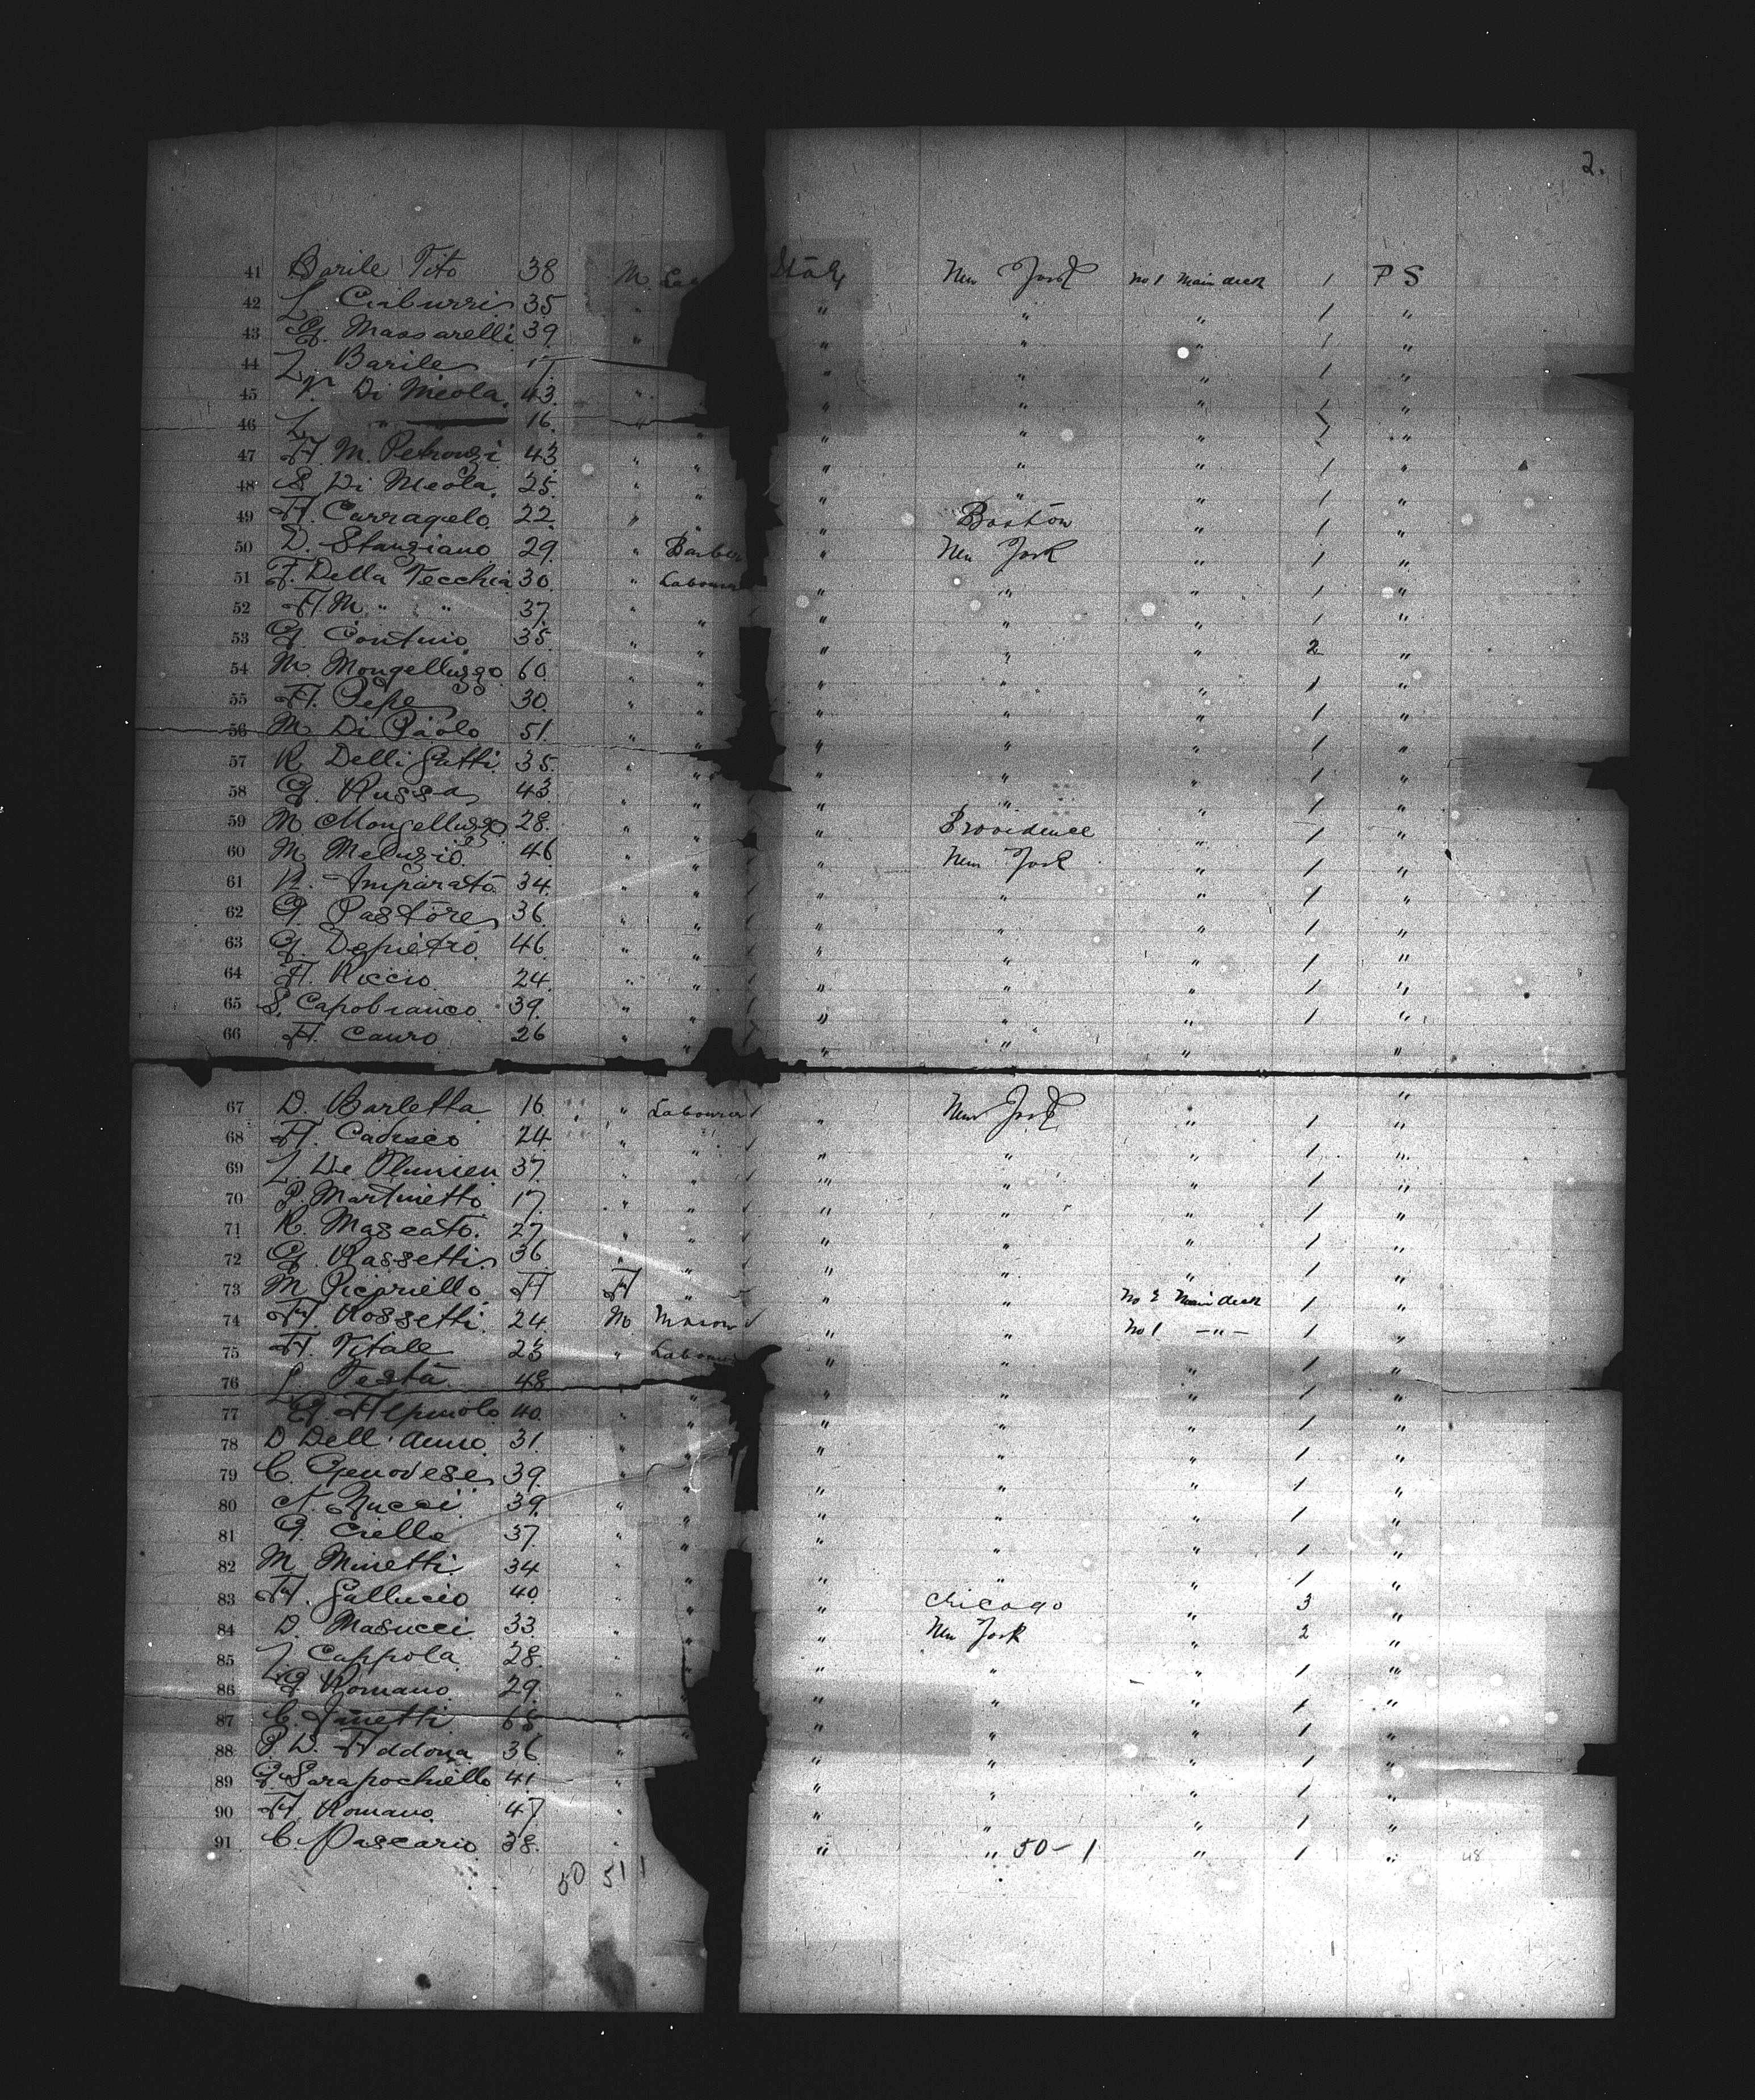 2.
41 Barile Tito 38 M Lab Italy New York No 1 Main deck 1 P S
42 L Ciaburri 35 " " " " 1 "
43 G. Massarelli 39 " " " " 1 "
44 L Barile 17 " " " 1 "
45 V. Di Meola 43 " " " " 1 "
46 L " 16 " " " " " 1 "
47 A M. Petrouzi 43 " " " " " 1 "
48 S Di Meola 25 " " " " " 1 "
49 A. Carragelo 22 " " " Boston " 1 "
50 D. Stanziano 29 " Barber " New York " 1 "
51 F. Della Vecchia 30 " Labourer " " " 1 "
52 A. M " " 37 " " " " " 1 "
53 G Contino 35 " " " " " 2 "
54 M Mongelluzzo 60 " " " " " 1 "
55 A. Pepe 30 " " " " " 1 "
56 M Di Paolo 51 " " " " " 1 "
57 R Delli Gatti 35 " " " " " 1 "
58 G. Russo 43 " " " " " 1 "
59 M Mongelluzzo 28 " " " Providence " 1 "
60 M Meluzio 46 " " " New York " 1 "
61 R. Imparato 34 " " " " " 1 "
62 G. Pastore 36 " " " " " 1 "
63 G. Depietro 46 " " " " " 1 "
64 A. Riccio 24 " " " " " 1 "
65 S. Capobianco 39 " " " " " 1 "
66 A. Cauro 26 " " " " " "
67 D. Barletta 16 " Labourer " New York " 1 "
68 A. 24 " " " " " 1 "
69 L De 37 " " " " " 1 "
70 P. Martinetto 17 " " " " " 1 "
71 R. Mascato 27 " " " " " 1 "
72 G. Rassetti 36 " " " " " 1 "
73 M Picariello A A " " " No 2 Main deck 1 "
74 A. Rossetti 24 M Mason " " No 1 -"- 1 "
75 A. Vitale 23 " Labourer " " " 1 "
76 L Testa 48 " " " " " 1 "
77 G. 40 " " " " " 1 "
78 D Dell' Anno 31 " " " " " 1 "
79 C. Genovese 39 " " " " " 1 "
80 N. Zucci 39 " " " " " 1 "
81 G. Crella 37 " " " " " 1 "
82 M Minetti 34 " " " " " 1 "
83 A. Galluccio 40 " " " Chicago " 3 "
84 D. Masucci 33 " " " New York " 2 "
85 L Cappola 28 " " " " " 1 "
86 G Romano 29 " " " " " 1 "
87 C. 65 " " " " " 1 "
88 P. D. Addona 36 " " " " 1 "
89 G. Sarapochiello 41 " " " " 1 "
90 A. Romano 47 " " " " 1 "
91 C. Pascario 38 " " " 50-1 " 1 " 48
50 51 1